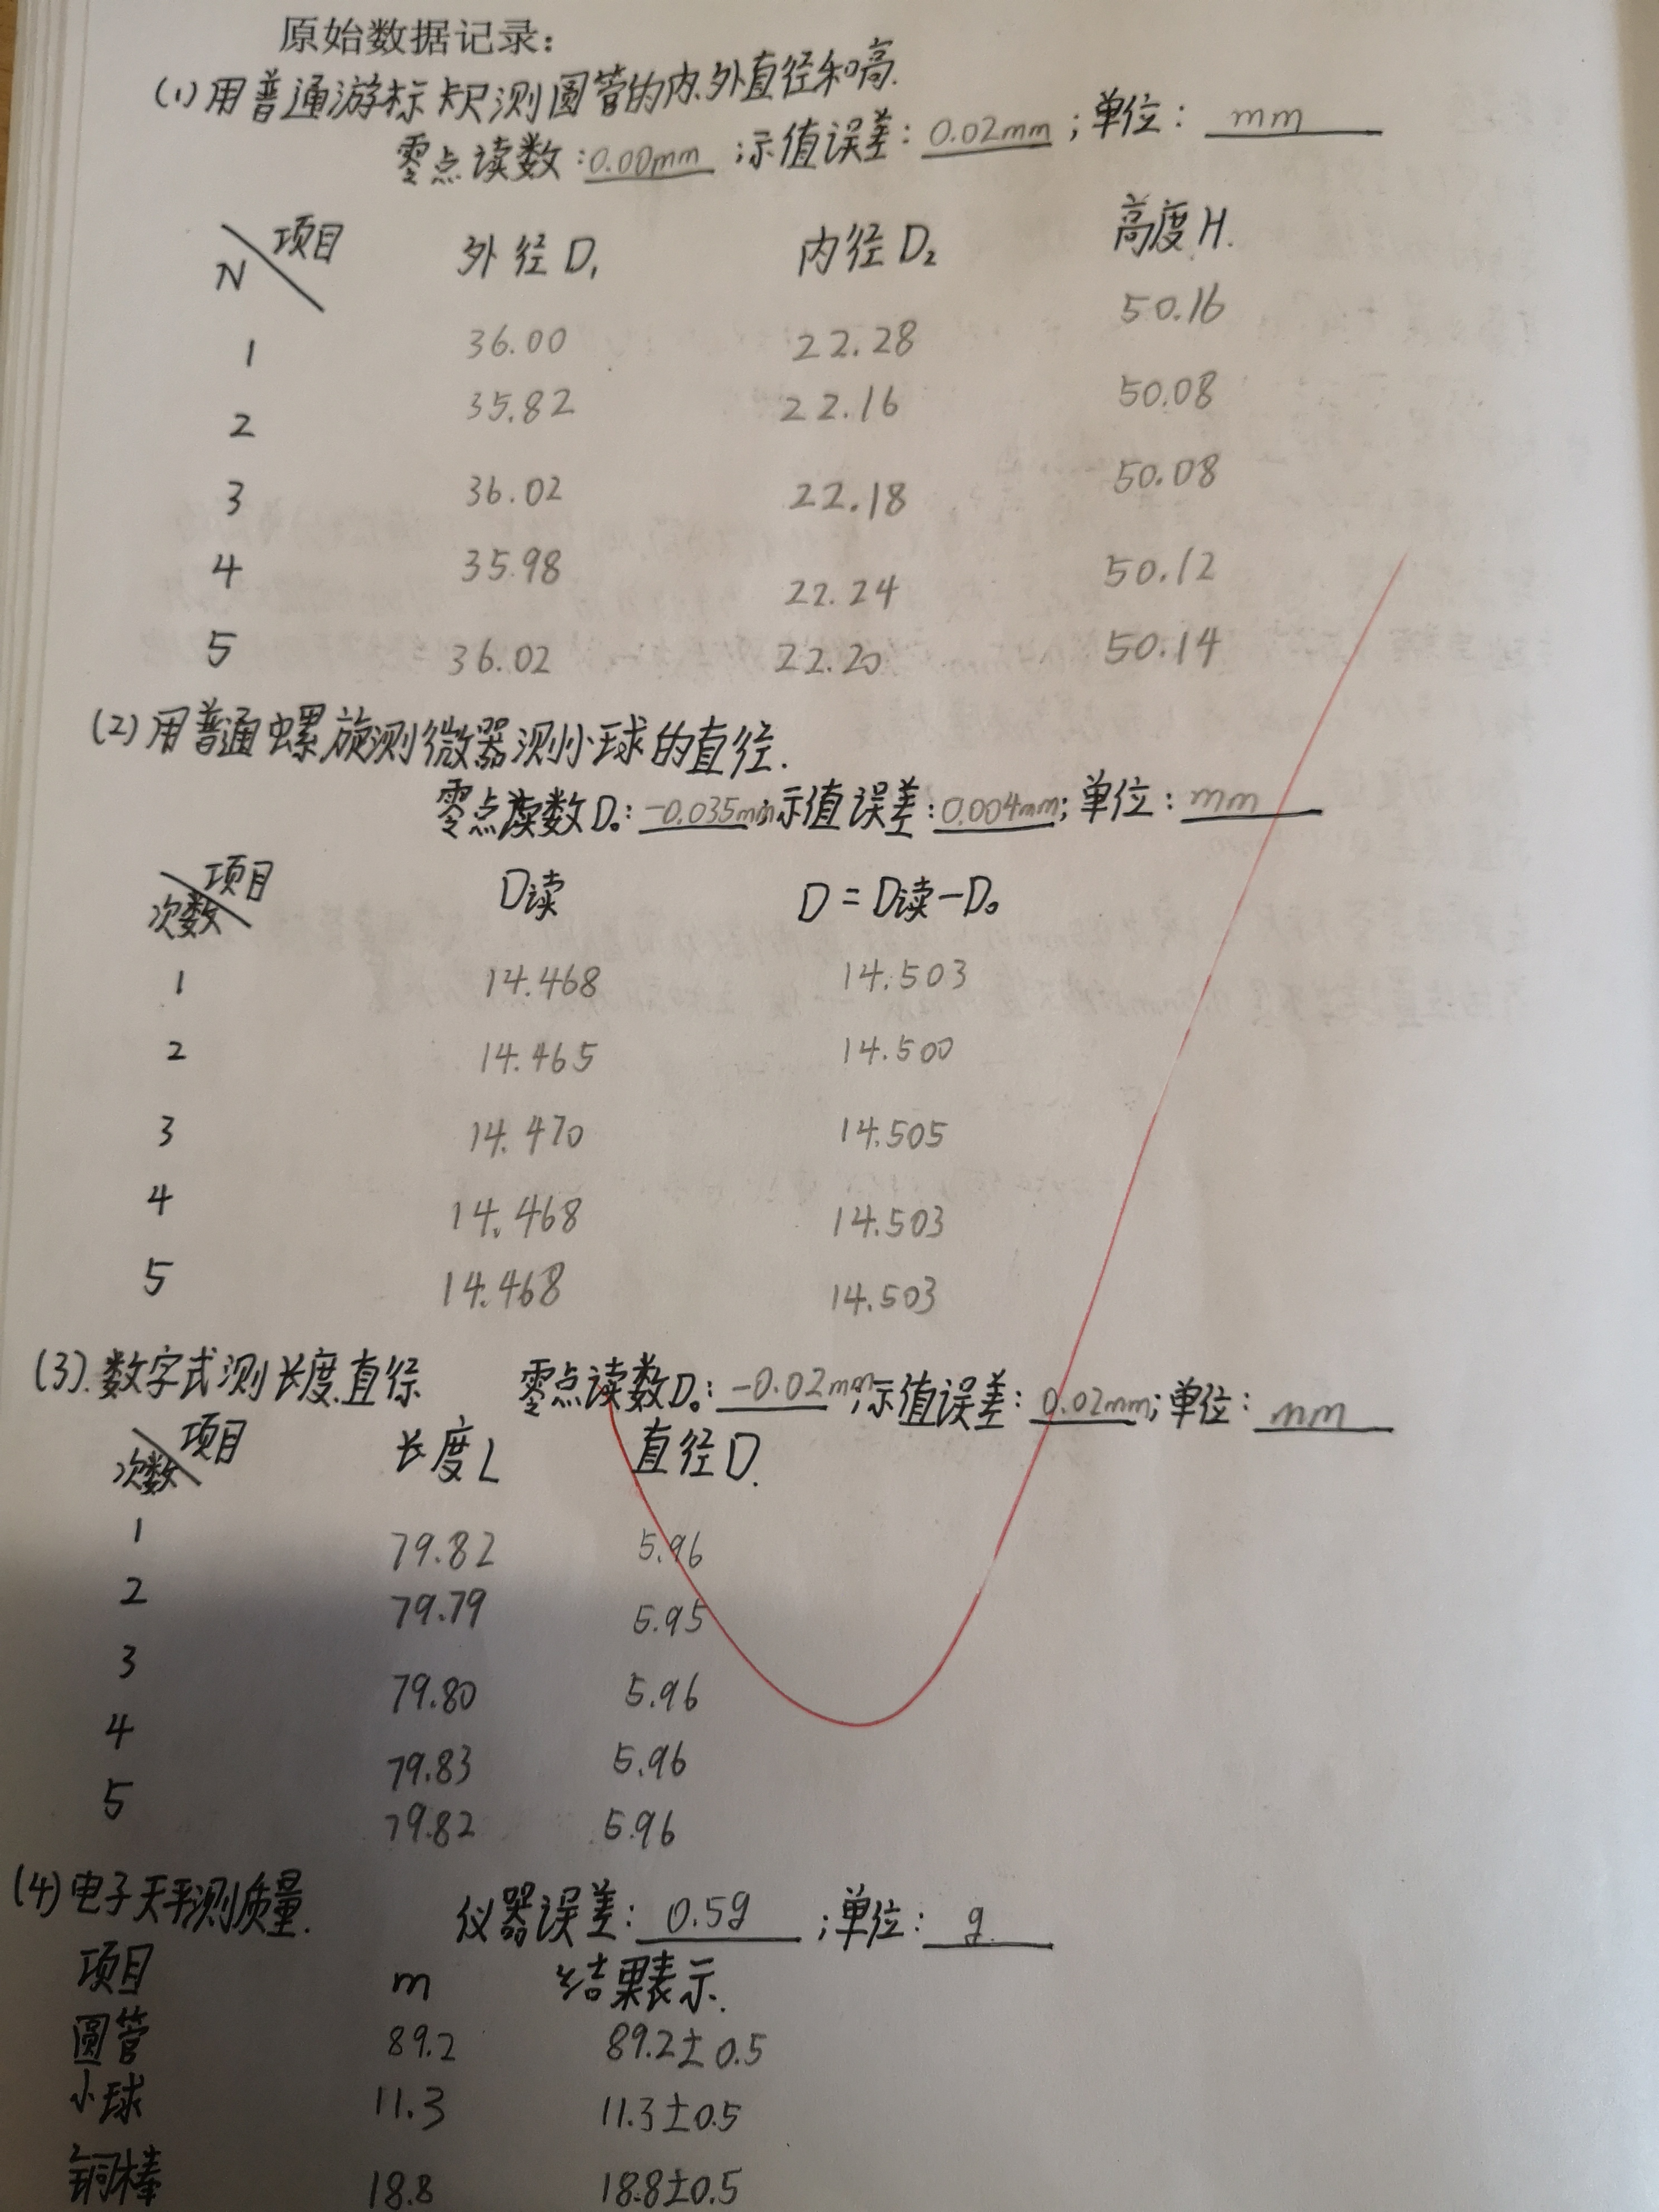 原始数据记录:
(1)用普通游标卡尺测圆管的内.外直径和高.
零点读数:0.00mm ;示值误差:0.02mm;单位: mm
N\项目 外径D₁ 内径D₂ 高度H.
1 36.00 22.28 50.16
2 35.82 22.16 50.08
3 36.02 22.18 50.08
4 35.98 22.24 50.12
5 36.02 22.20 50.14
(2)用普通螺旋测微器测小球的直径.
零点读数D₀:-0.035mm;示值误差:0.004mm;单位:mm
次数\项目 D读 D=D读-D₀
1 14.468 14.503
2 14.465 14.500
3 14.470 14.505
4 14.468 14.503
5 14.468 14.503
(3).数字式测长度.直径 零点读数D₀:-0.02mm;示值误差:0.02mm;单位:mm
次数\项目 长度L 直径D.
1 79.82 5.96
2 79.79 5.95
3 79.80 5.96
4 79.83 5.96
5 79.82 5.96
(4)电子天平测质量. 仪器误差:0.5g ;单位:g.
项目 m 结果表示.
圆管 89.2 89.2±0.5
小球 11.3 11.3±0.5
铜棒 18.8 18.8±0.5